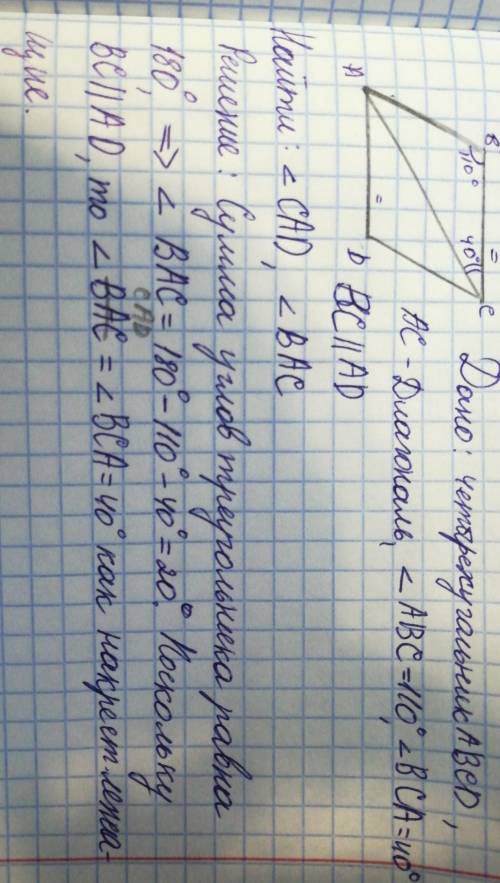 A
B
110°
40°
C
D
=
=
Дано: четырехугальник ABCD,
AC - Диагональ, ∠ABC=110°, ∠BCA=40°
BC||AD
Найти: ∠CAD, ∠BAC
Решение: Сумма углов треугольника равна
180°, => ∠BAC=180°-110°-40°=20°. Поскольку
CAD
BC||AD, то ∠BAC=∠BCA=40° как накрест лежа-
щие.